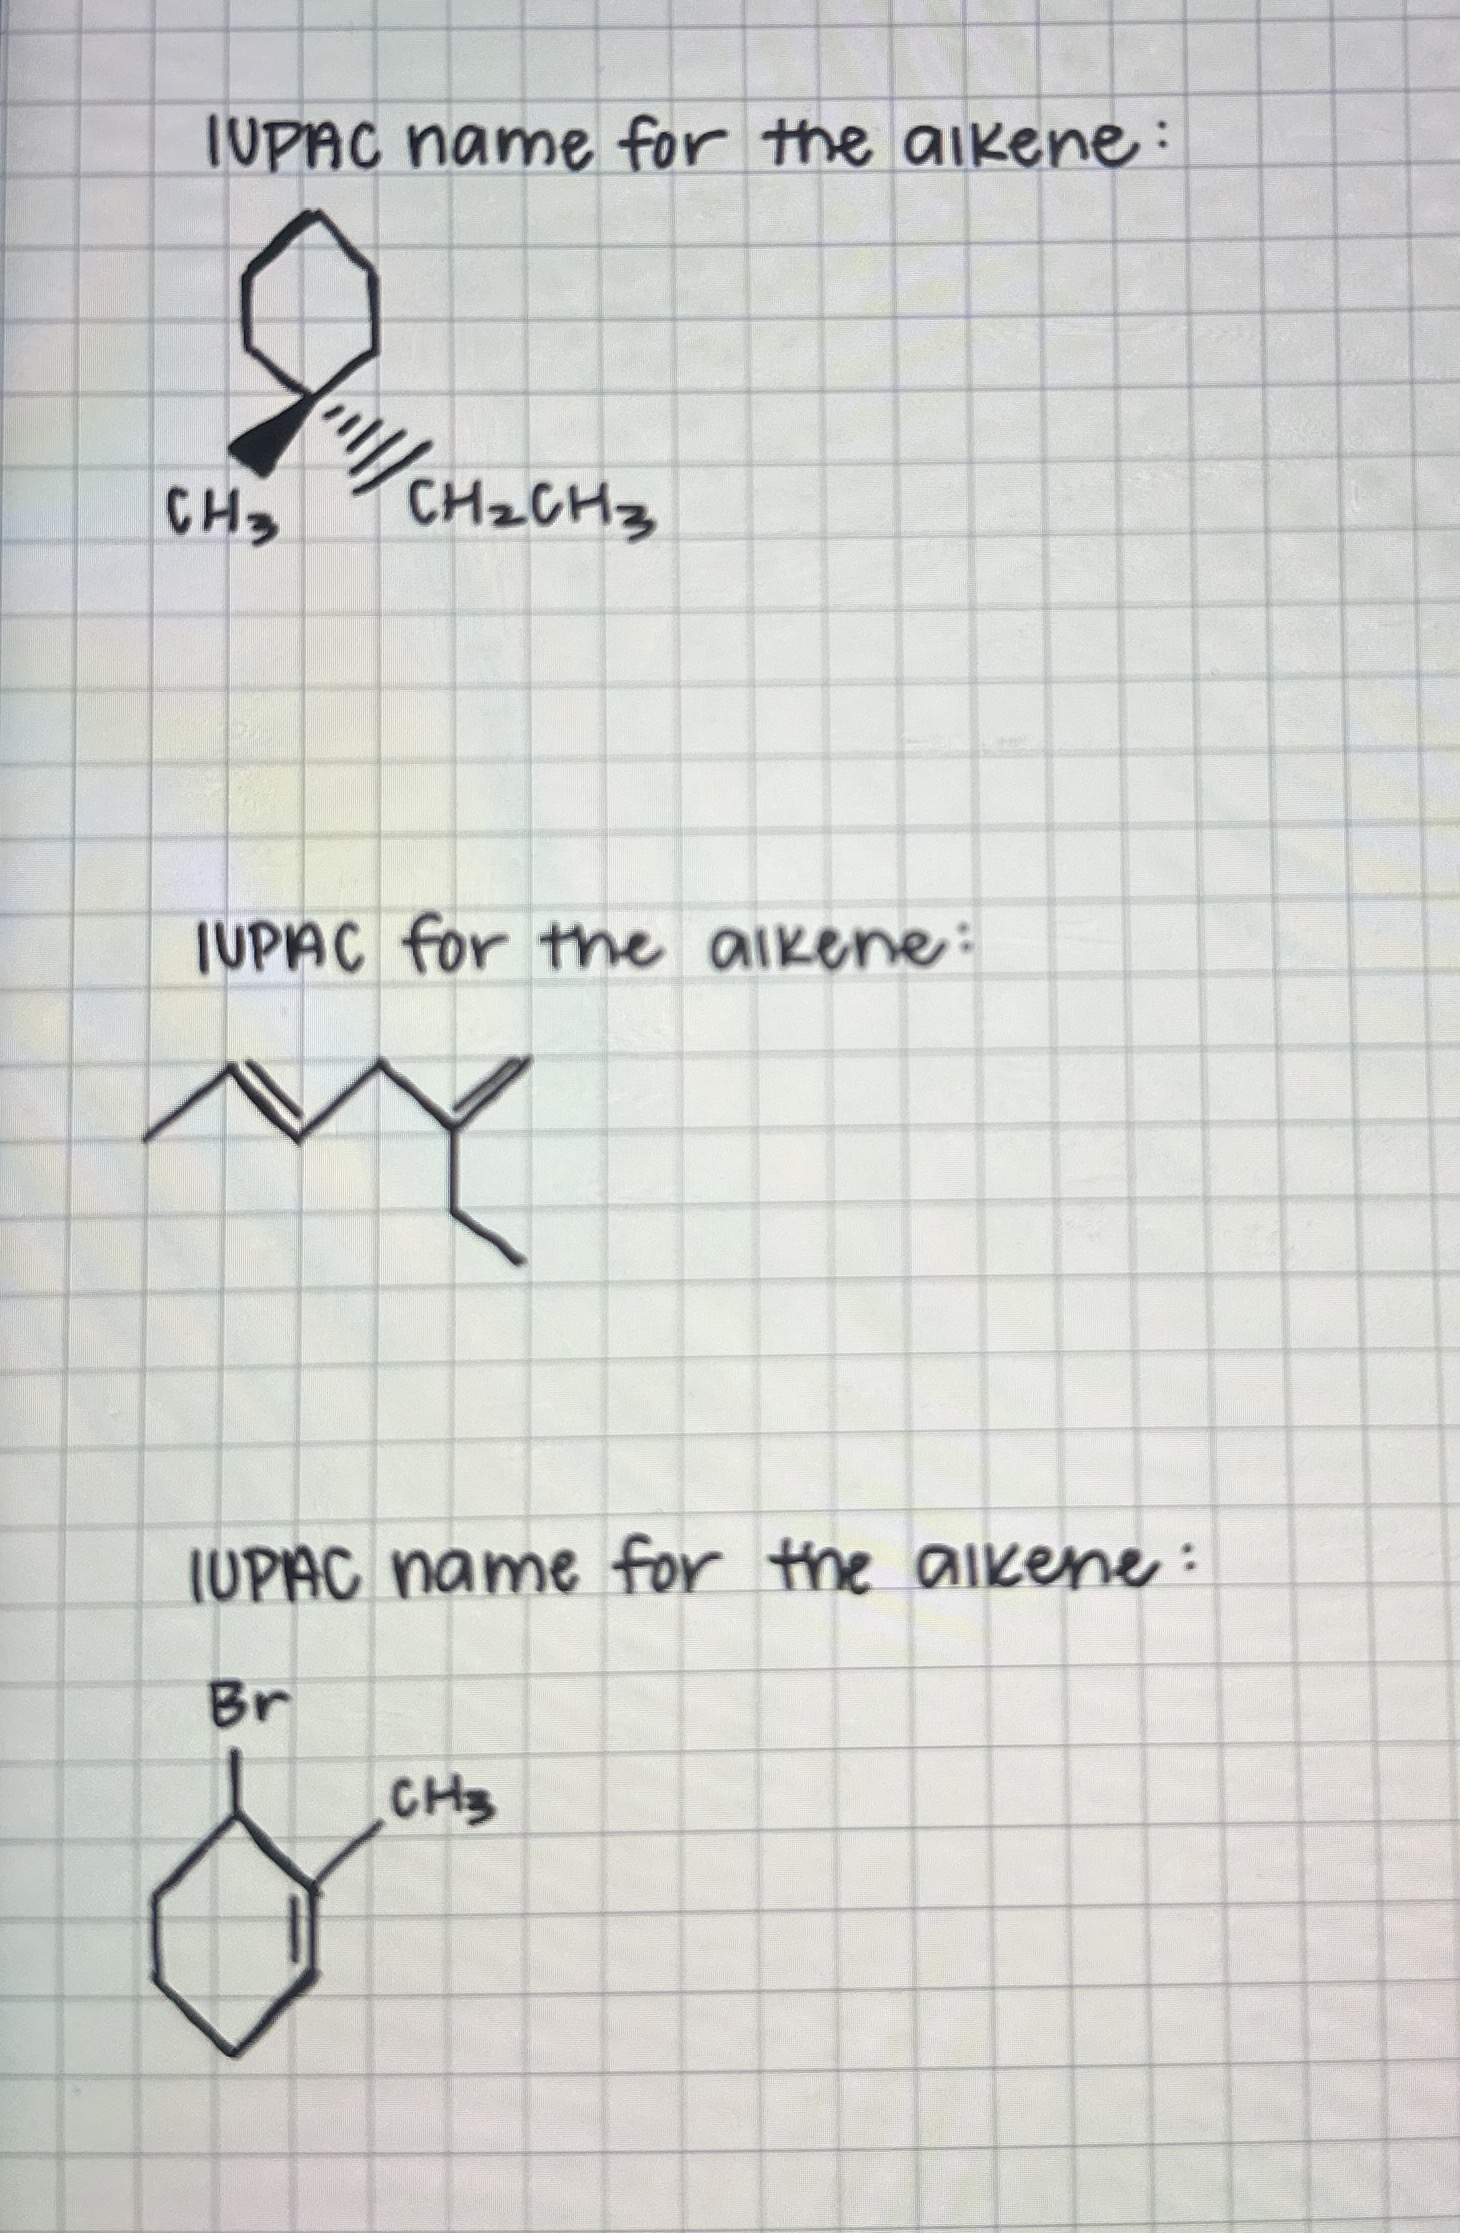 IUPAC name for the alkene:
CH₃ CH₂CH₃
IUPAC for the alkene:
IUPAC name for the alkene:
Br
CH₃